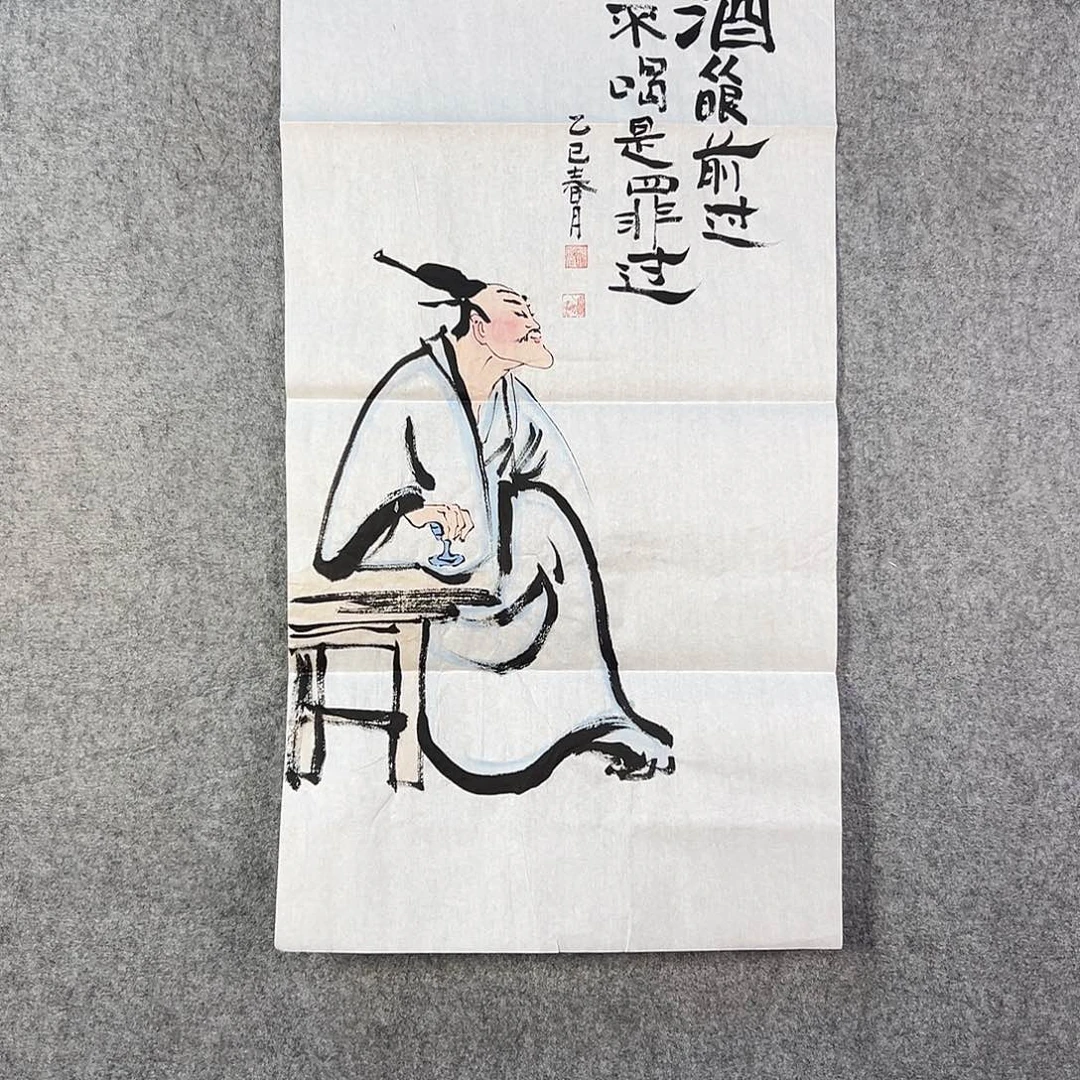 酒眼前过
喝是罪过
乙巳春月